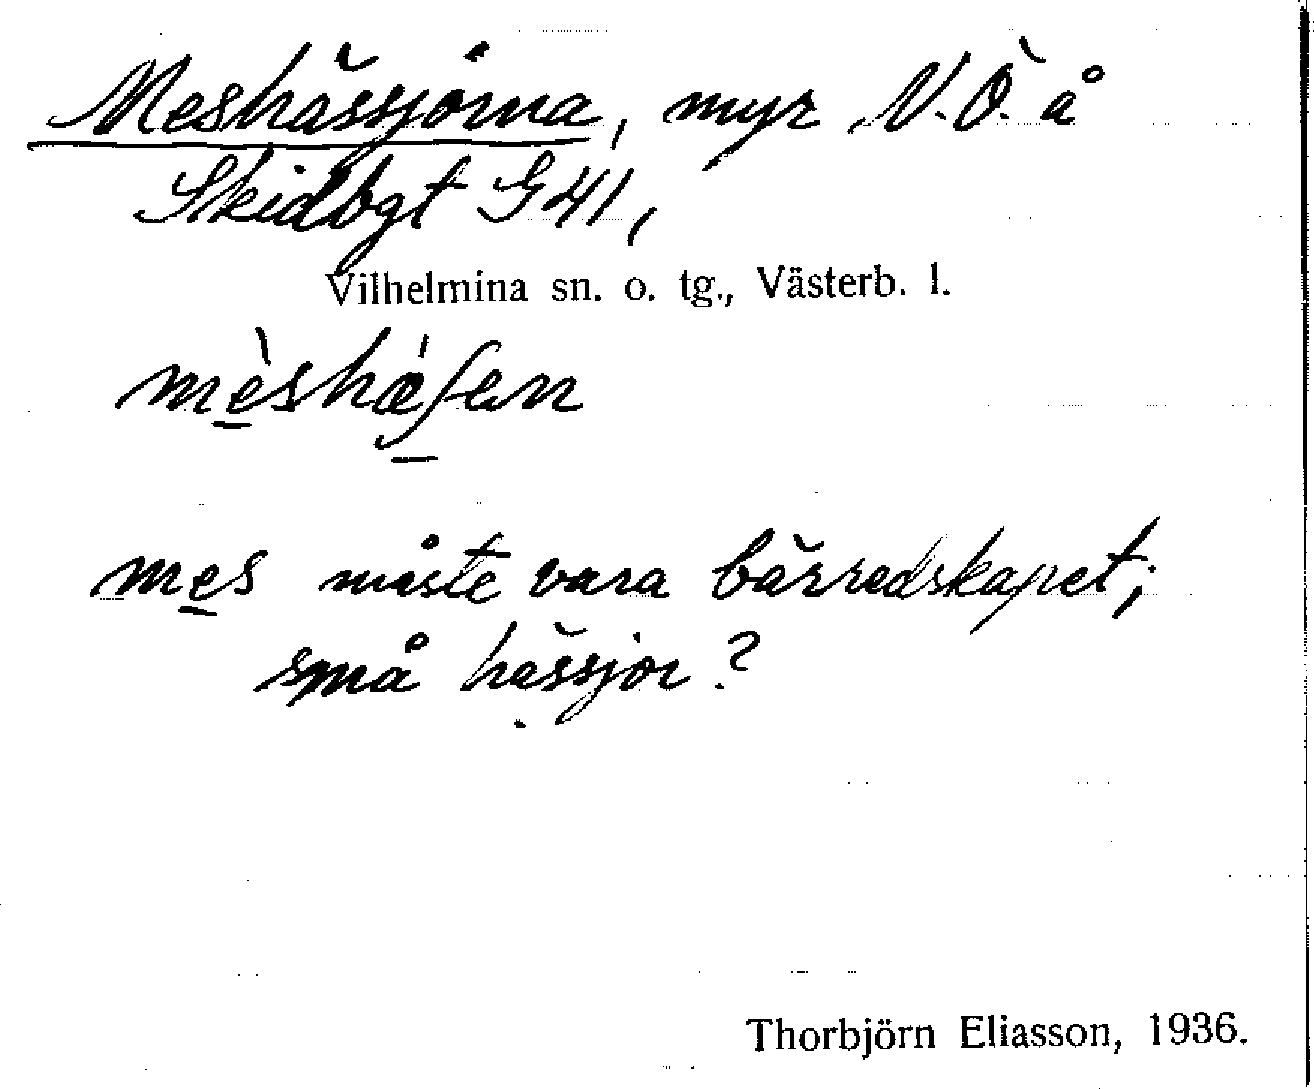 Meshässjorna, myr N.Ö. å
Skidbgt G 41,
Vilhelmina sn. o. tg., Västerb. l.
mèshæ̀ʃen
mes måste vara bärredskapet;
små hässjor?
Thorbjörn Eliasson, 1936.